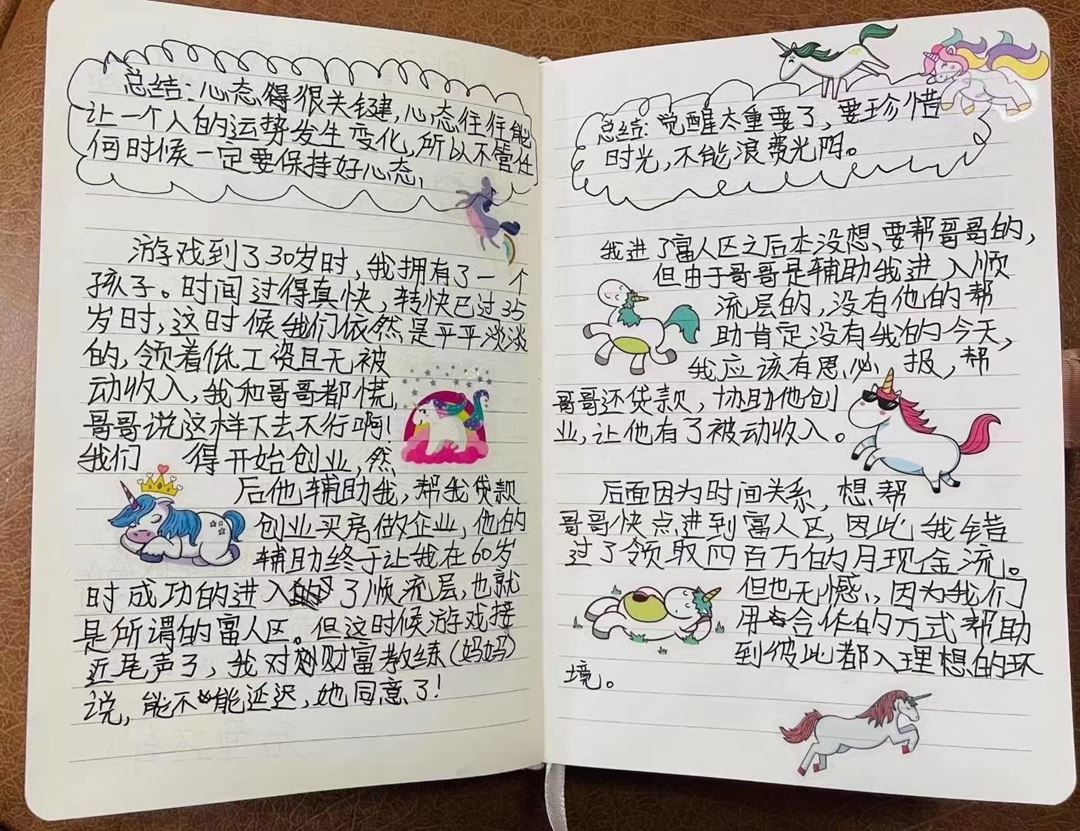 总结:心态得狠关键,心态往往能
让一个人的运势发生变化,所以不管任
何时候一定要保持好心态,
游戏到了30岁时,我拥有了一个
孩子。时间过得真快,转快已过35
岁时,这时候我们依然是平平淡淡
的,领着低工资且无被
动收入,我和哥哥都慌,
哥哥说这样下去不行啊!
我们 得开始创业,然
后他辅助我,帮我贷款
创业买房做企业,他的
辅助终于让我在60岁
时成功的进入了顺流层,也就
是所谓的富人区。但这时候游戏接
近尾声了,我对财富教练(妈妈)
说,能不能延迟,她同意了!
总结:觉醒太重要了,要珍惜
时光,不能浪费光阴。
我进了富人区之后本没想、要帮哥哥的,
但由于哥哥是辅助我进入顺
流层的,没有他的帮
助肯定没有我的今天,
我应该有恩必 报,帮
哥哥还贷款,协助他创
业,让他有了被动收入。
后面因为时间关系,想帮
哥哥快点进到富人区,因此我错
过了领取四百万的月现金流。
但也无憾,因为我们
用合作的方式帮助
到彼此都入理想的环
境。